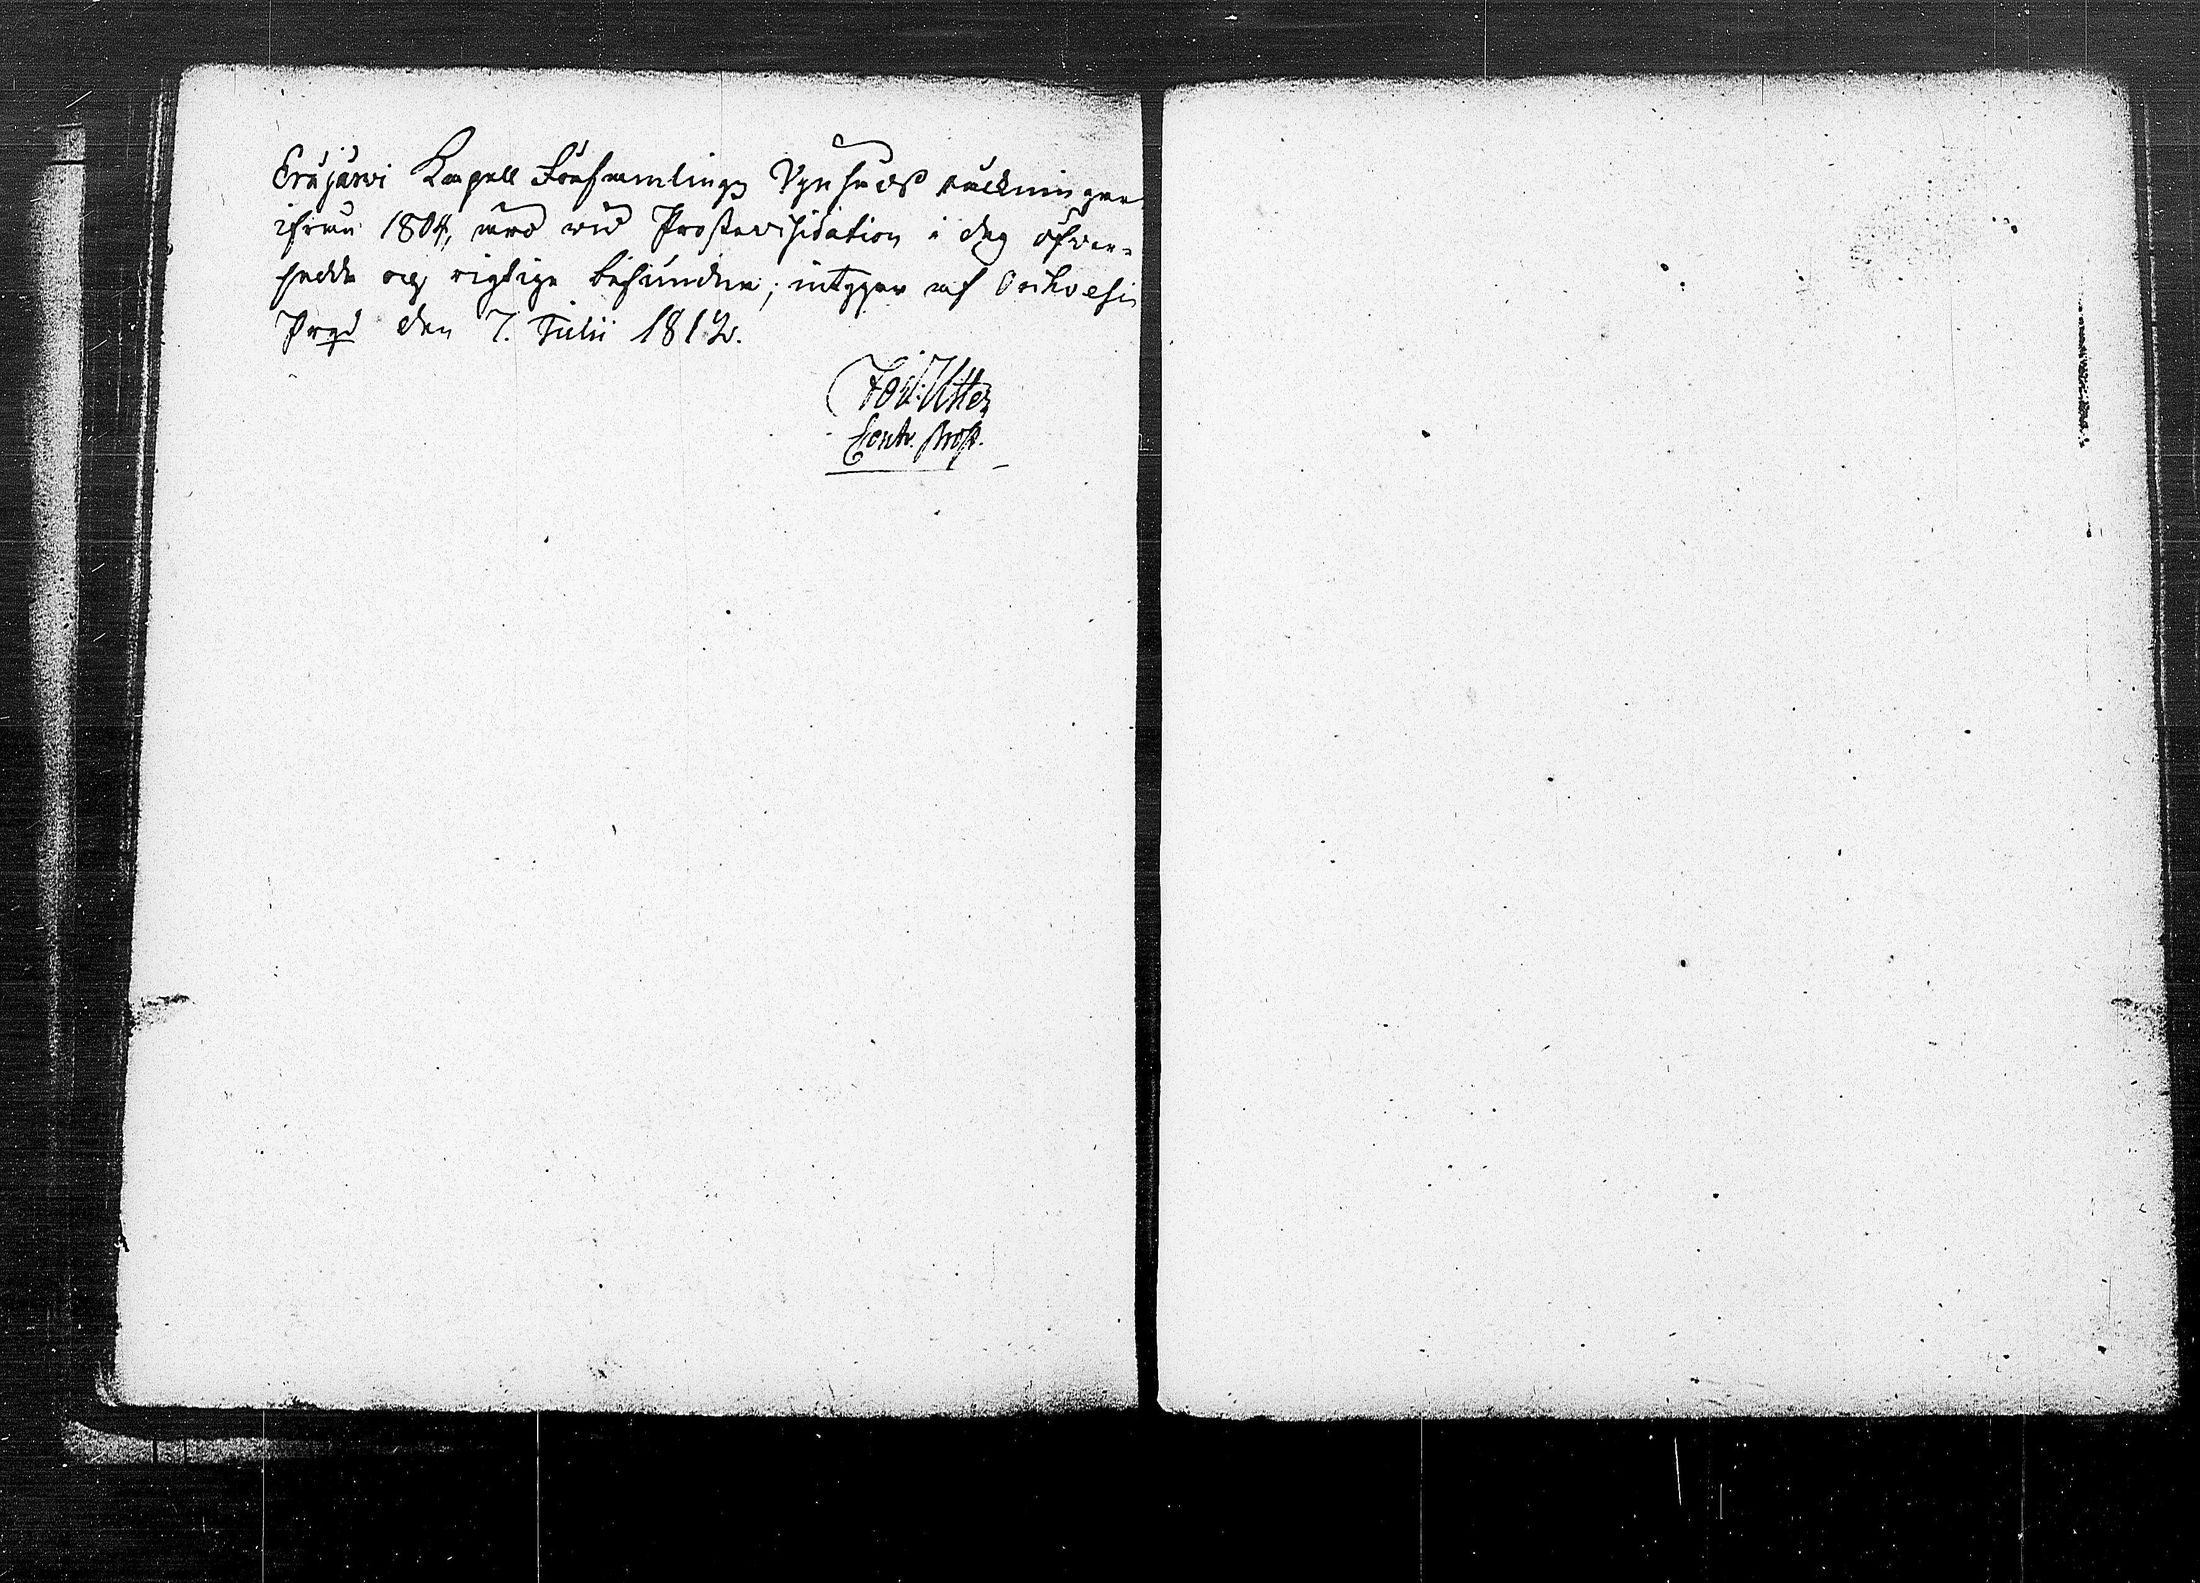 Eräjärvi Kapell Församlings Spanmåls räkningar
ifrån 1804, äro vid Prostevisitation i dag öfver-
sedde och rigtige befundne; intygar af Orihvesi
Prgd den 7. Julii 1812.
Joh: Utter
Contr. Prost.